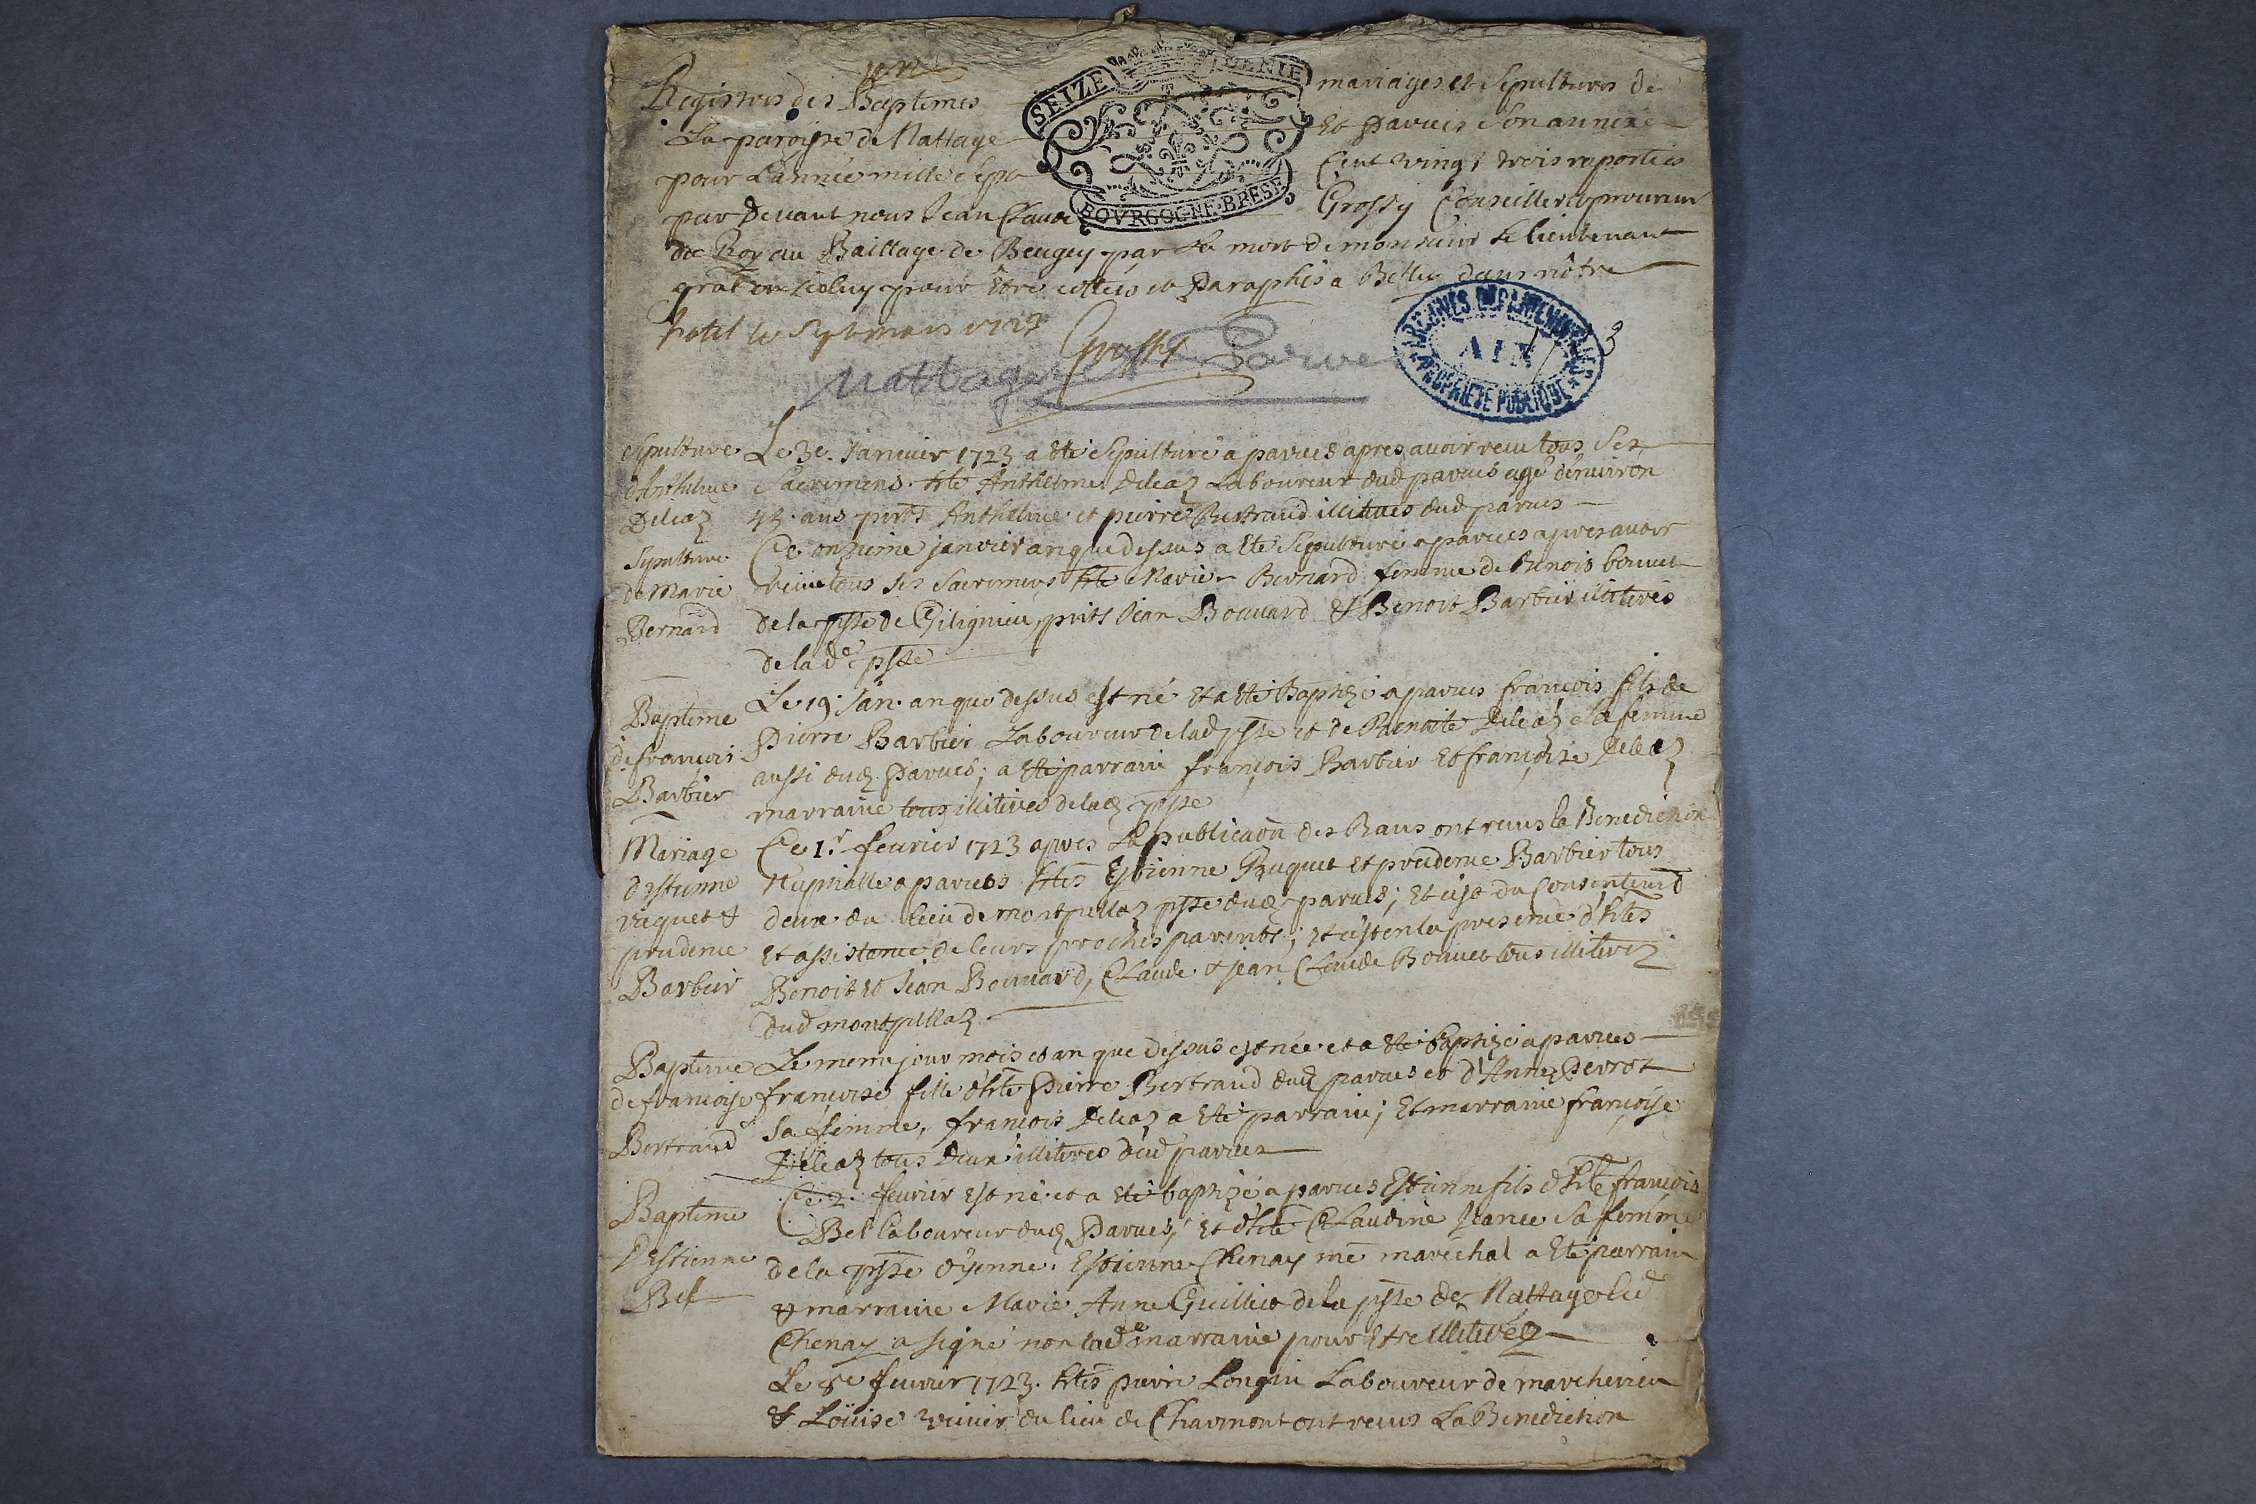 Registres des Baptemes mariages et Sepultures de
La paroisse de Nattage et Parves son annexe
pour L'année mille Sept Cent vingt trois
par Devant nous Jean Claude Grossy Conseiller et procureur
du Roy au Baillage de Beugey par la mort de monsieur le lieutenant
gral en iceluy pour être cottées et Paraphés a Belley dans nôtre
hotel le mars
SEIZE DENIE
BOVRGOGNE·BRESE
Grossy
Nattage Parves
ARCHIVES DEPARTEMENTALES
AIN
PROPRIETE PUBLIQUE
3
Sepulture
d'Anthelme
Deleaz
Le 3e. Janvier 1723 a été sepulturé a parves apres avoir receu tous Ses
Sacremens. hte Anthelme Deleaz Laboureur dud parves agé d'environ
ans pnts Anthelme et pierre Bertrand illiteres dud parves
Sepulture
de Marie
Bernard
Ce onzieme janvier an que dessus a été sepulturé a parves apres avoir
tous ses Sacremens hte Marie Bernard femme de Benois bouvet
de la psse de Gilignieu, pnts Jean Bouvard & Benoit Barbier illiteres
de lade psse
Bapteme
de françois
Barbier
Le 19 Jan. an que dessus est né et a été Baptizé a parves françois fils de
Pierre Barbier Laboureur de lad psse et de Benoite Deleaz sa femme
aussi dud Parves; a été parrain françois Barbier et françoise Deleaz
marraine tous illiteres de lad psse
Mariage
d'Estienne
&
prudence
Barbier
Ce 1r. fevrier 1723 apres la publicaon des Bans ont receus la Benediction
Nuptialle a parves htes Estienne et prudence Barbier tous
deux du lieu de montpellaz psse dud parves; et c'est du Consentemt
et assistance de leurs proches parents; et c'est en la presence d'htes
Benoit et Jean Bouvard, Claude & Jean Claude Bouvet tous illiterez
dud montpellaz
Bapteme
de françoise
Bertrand
Le meme jour mois et an que dessus est née et a été baptizé a parves
françoise fille d'hte Pierre Bertrand dud parves et d'Anne Perrot
Sa femme, françois Deleaz a été parrain; Et marraine françoise
Deleaz tous deux illiteres dud parves
Bapteme
d'Estienne
Bel
Ce 2. fevrier est né et a été baptizé a parves Estienne fils d'hte françois
Bel laboureur dud Parves, et d'hte Claudine sa femme
de la psse d'yenne. Estienne Chenay me maréchal a été parrain
& marraine Marie Anne Guilliet de la psse de Nattage led
Chenay a signé non lade marraine pour Etre illiterée
Le 8e fevrier 1723. htes pierre Longin Laboureur de marcherieu
& Loüise du lieu de Charmont ont receus La Benediction